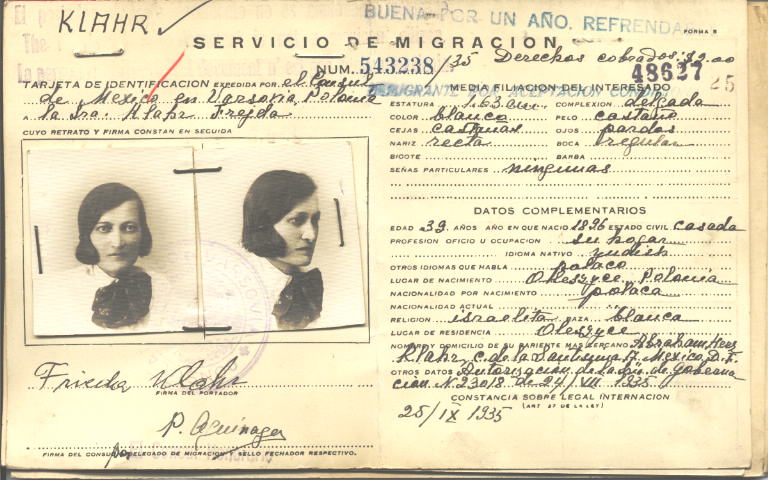 KLAHR
BUENA POR UN AÑO. REFRENDA
FORMA 5
SERVICIO DE MIGRACION
NUM. 543238 /35 Derechos cobrados:
48627
25
TARJETA DE IDENTIFICACION EXPEDIDA POR el Consul
de Mexico en Varsovia, Polonia
A la Sra. Klahr Frejda
CUYO RETRATO Y FIRMA CONSTAN EN SEGUIDA
Frieda Klahr
FIRMA DEL PORTADOR
P. Aguinaga
FIRMA DEL CONSUL O DELEGADO DE MIGRACION Y SELLO FECHADOR RESPECTIVO.
MEDIA FILIACION DEL INTERESADO
ESTATURA 1.63 cm. COMPLEXION delgada
COLOR blanco PELO castaño
CEJAS castañas OJOS pardos
NARIZ recta BOCA regular
BIGOTE BARBA
SEÑAS PARTICULARES ningunas
DATOS COMPLEMENTARIOS
EDAD 39 AÑOS AÑO EN QUE NACIO 1896 ESTADO CIVIL casada
PROFESION OFICIO U OCUPACION su hogar
IDIOMA NATIVO yudish
OTROS IDIOMAS QUE HABLA polaco
LUGAR DE NACIMIENTO Oleszyce, Polonia
NACIONALIDAD POR NACIMIENTO polaca
NACIONALIDAD ACTUAL
RELIGION israelita RAZA blanca
LUGAR DE RESIDENCIA Oleszyce
NOMBRE Y DOMICILIO DE SU PARIENTE MAS CERCANO Abraham
Klahr, C. de la Santisima 17. Mexico, D. F.
OTROS DATOS Autorizacion de la Sria. de Goberna
cion N. 23018 de 24/VII 1935
CONSTANCIA SOBRE LEGAL INTERNACION
(ART 57 DE LA LEY)
25/IX 1935